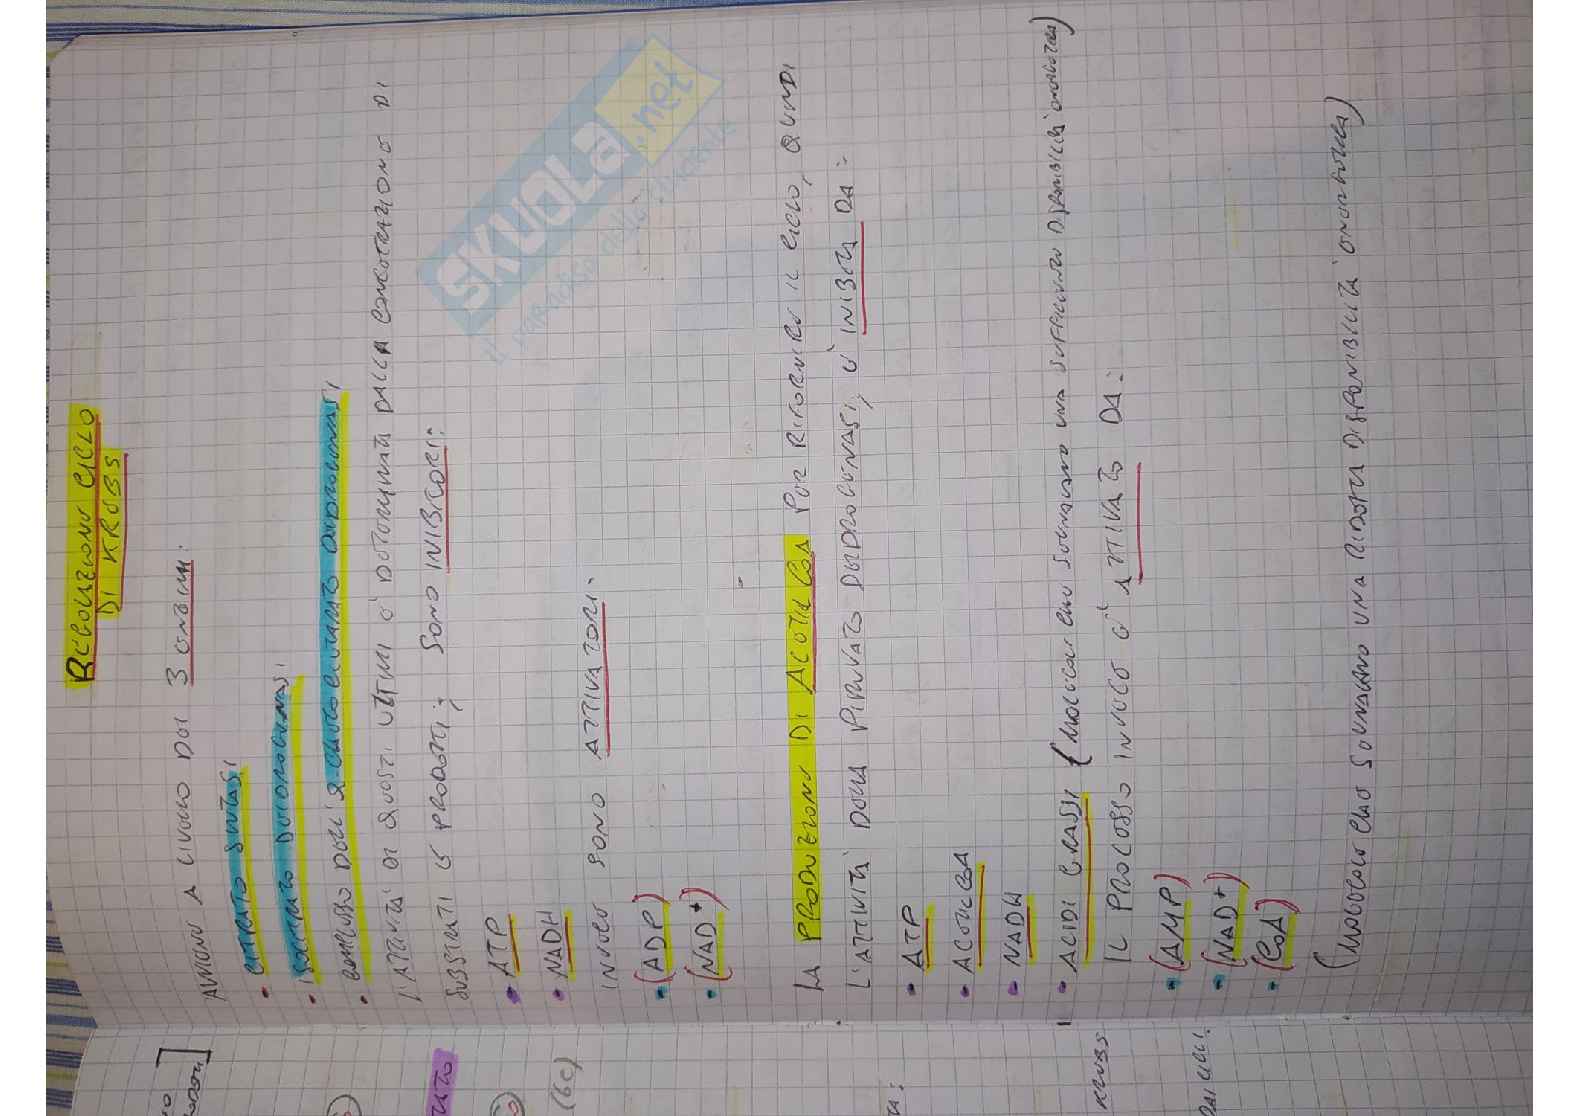 REGOLAZIONE CICLO
DI KREBS
AVVIENE A LIVELLO DEI 3 ENZIMI:
• CITRATO SINTASI
• ISOCITRATO DEIDROGENASI
• COMPLESSO DELL'α-CHETOGLUTARATO DEIDROGENASI
L'ATTIVITÀ DI QUESTI ULTIMI E' DETERMINATA DALLA CONCENTRAZIONE DI
SUBSTRATI E PRODOTTI; SONO INIBITORI:
• ATP
• NADH
INVECE SONO ATTIVATORI:
• (ADP)
• (NAD+)
LA PRODUZIONE DI ACETIL CoA PER RIFORNIRE IL CICLO, QUINDI
L'ATTIVITÀ DELLA PIRUVATO DEIDROGENASI, E' INIBITA DA:
• ATP
• ACETIL CoA
• NADH
• ACIDI GRASSI (MOLECOLE CHE SEGNALANO UNA SUFFICIENTE DISPONIBILITÀ ENERGETICA)
IL PROCESSO INVECE E' ATTIVATO DA:
• (AMP)
• (NAD+)
• (CoA)
(MOLECOLE CHE SEGNALANO UNA RIDOTTA DISPONIBILITÀ ENERGETICA)
SKUOLA.net
il paradiso dello studente
(6C)
KREBS